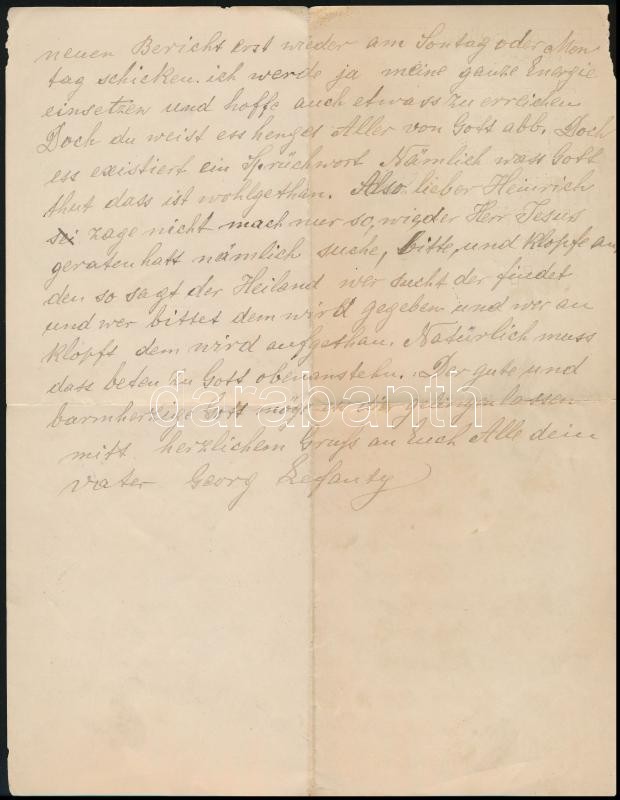 neuen Bericht erst wieder am Sontag oder Mon
tag schicken. ich werde ja meine ganze Energie
einsetzen und hoffe auch etwass zu erreichen
Doch du weist ess henges Aller von Gott abb. Doch
ess existiert ein Sprüchwort Nämlich wass Gott
thut dass ist wohlgethan. Also lieber Heinrich
zage nicht mach nur so, wie der Herr Jesus
geraten hatt nämlich suche, bitte, und klopfe an,
den so sagt der Heiland wer sucht der findet
und wer bittet dem wird gegeben und wer an
klopft dem wird aufgethan. Natürlich muss
dass beten zu Gott obenanstehn. Der gute und
barmherzige Gott möge es dir gelingen lassen
mitt herzlichem Gruss an Euch Alle dein
vater Georg Lefanty
darabanth